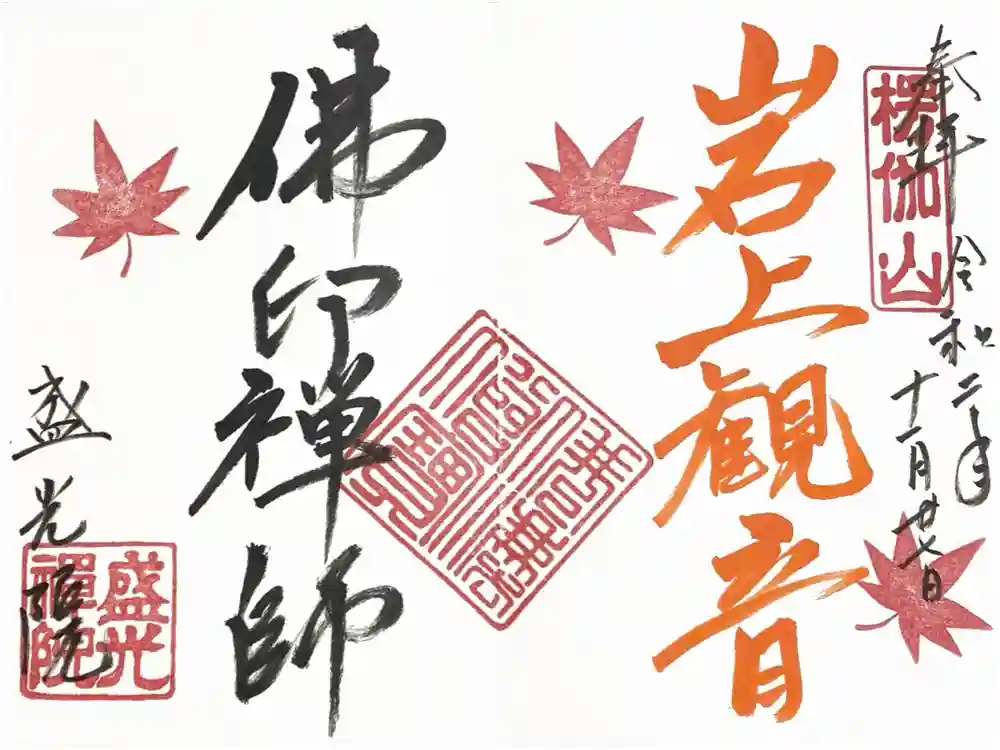 奉拝 令和二年
十一月廿八日
楞伽山
岩上観音
佛印禅師
盛光院
盛光
禅院